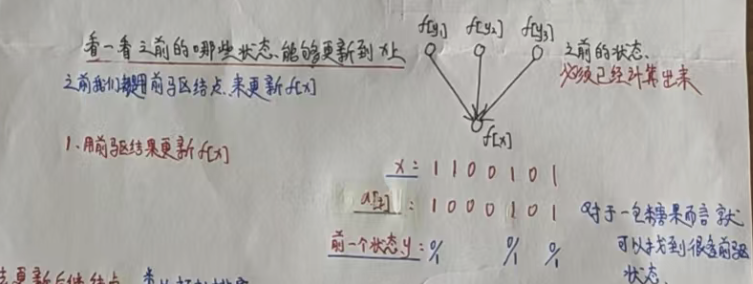 f[y₁] f[y₂] f[y₃]
看一看之前的哪些状态,能够更新到x上
之前的状态,
必须已经计算出来
之前我们都是用前驱结点,来更新f[x]
f[x]
1.用前驱结果更新f[x]
x: 1 1 0 0 1 0 1
a[i]: 1 0 0 0 1 0 1
对于一包糖果而言就
可以找到很多前驱
状态.
前一个状态y: 0/1 0/1 0/1
更新后继结点